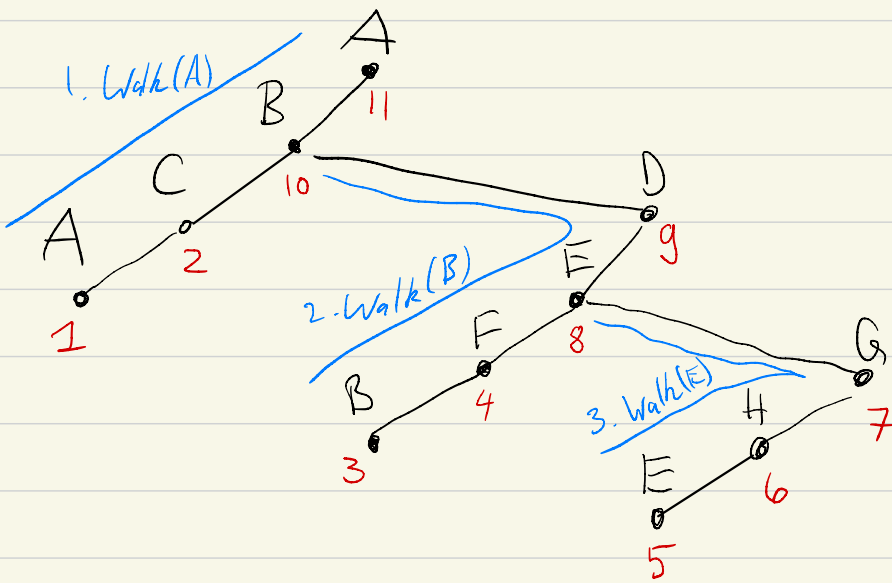 A
1. Walk(A)
B
11
C
10
D
A
2
9
E
2. Walk(B)
1
F
8
G
B
4
3. Walk(E)
H
7
3
E
6
5